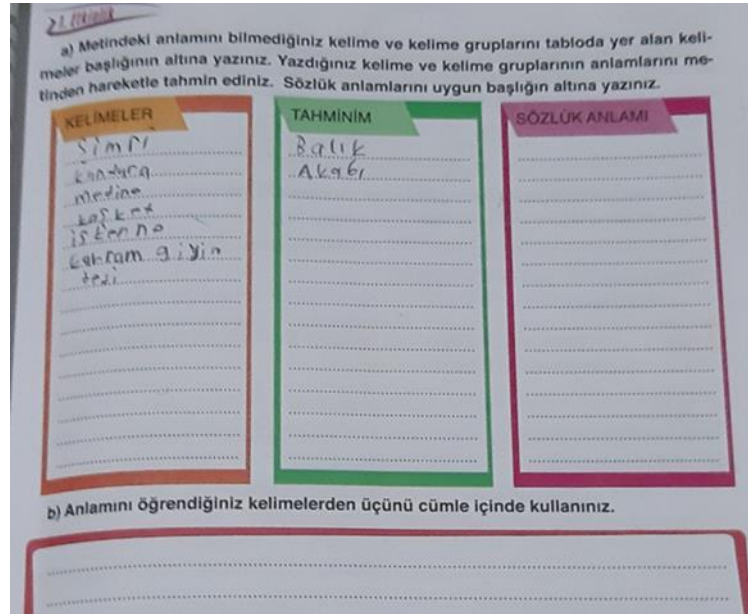 2. etkinlik
a) Metindeki anlamını bilmediğiniz kelime ve kelime gruplarını tabloda yer alan keli-
meler başlığının altına yazınız. Yazdığınız kelime ve kelime gruplarının anlamlarını me-
tinden hareketle tahmin ediniz. Sözlük anlamlarını uygun başlığın altına yazınız.
KELİMELER
Simri
kundura
medine
kasket
giyin
TAHMİNİM
Balık
Akabı
SÖZLÜK ANLAMI
b) Anlamını öğrendiğiniz kelimelerden üçünü cümle içinde kullanınız.